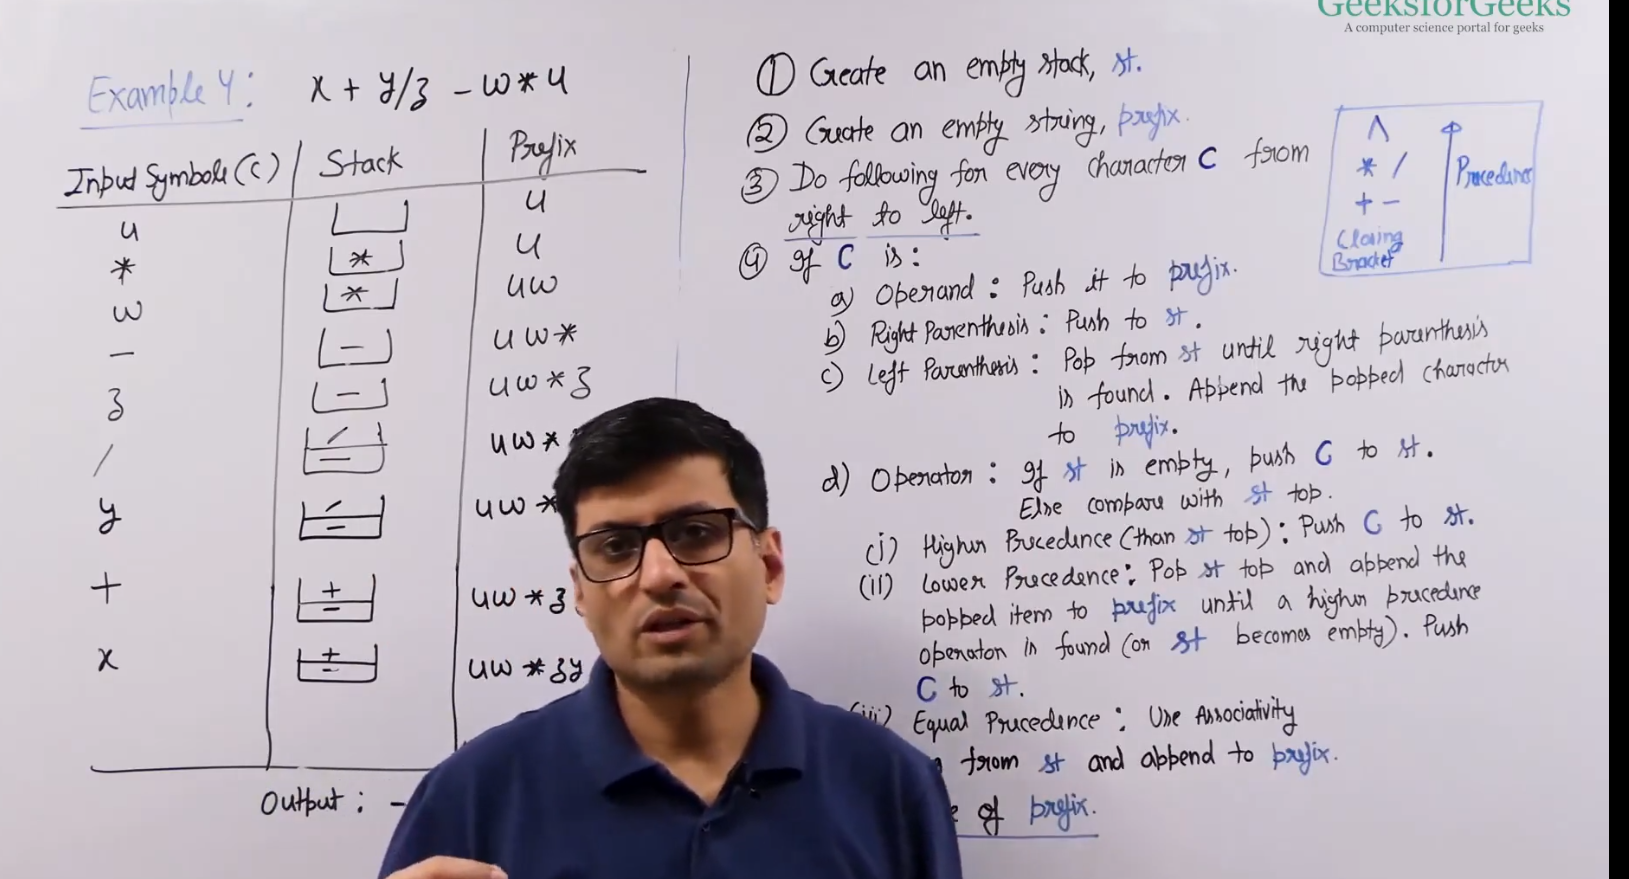 GeeksforGeeks
A computer science portal for geeks
Example 4: x + y/z - w * u
Input Symbols (C) Stack Prefix
u u
* * u
w * uw
- - uw*
z - uw*z
/ / - uw*
y / - uw*
+ + - uw*z
x + - uw*zy
Output : -
① Create an empty stack, st.
② Create an empty string, prefix.
③ Do following for every character C from
right to left.
④ If C is:
a) Operand : Push it to prefix.
b) Right Parenthesis : Push to st.
c) Left Parenthesis : Pop from st until right parenthesis
is found. Append the popped character
to prefix.
d) Operator : If st is empty, push C to st.
Else compare with st top.
(i) Higher Precedence (than st top) : Push C to st.
(ii) Lower Precedence : Pop st top and append the
popped item to prefix until a higher precedence
operator is found (or st becomes empty). Push
C to st.
(iii) Equal Precedence : Use Associativity
from st and append to prefix.
of prefix.
^
* /
+ -
Closing
Bracket
Precedence